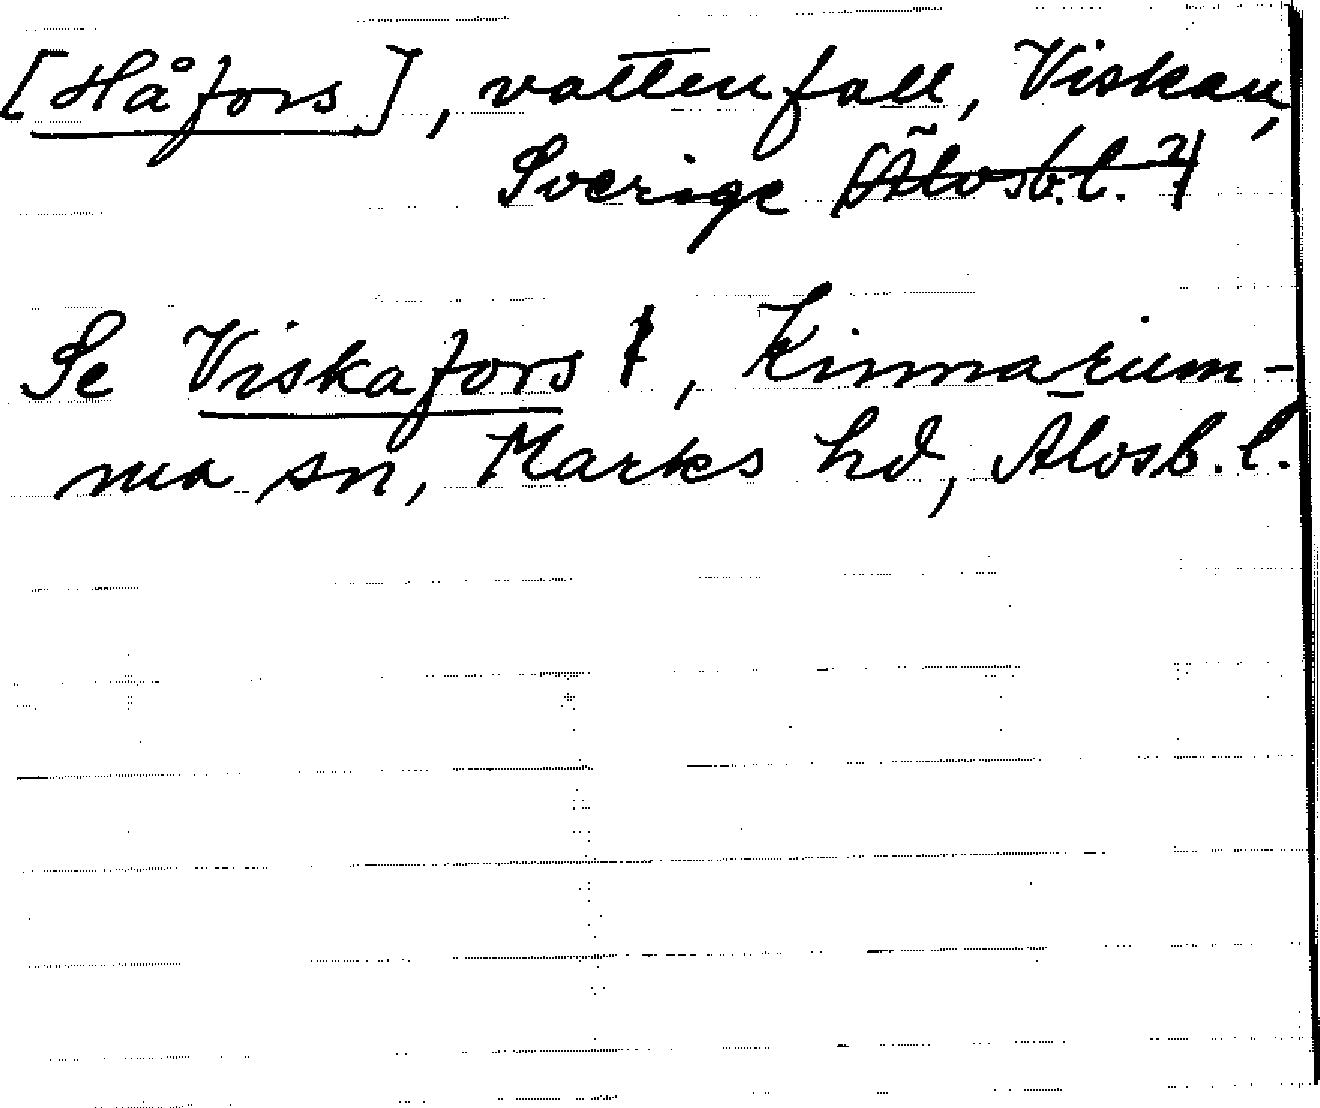 [Håfors], vattenfall, Viskan,
Sverige (Älvsb.l.?)
Se Viskafors, Kinnarum-
ma sn, Marks hd, Älvsb.l.